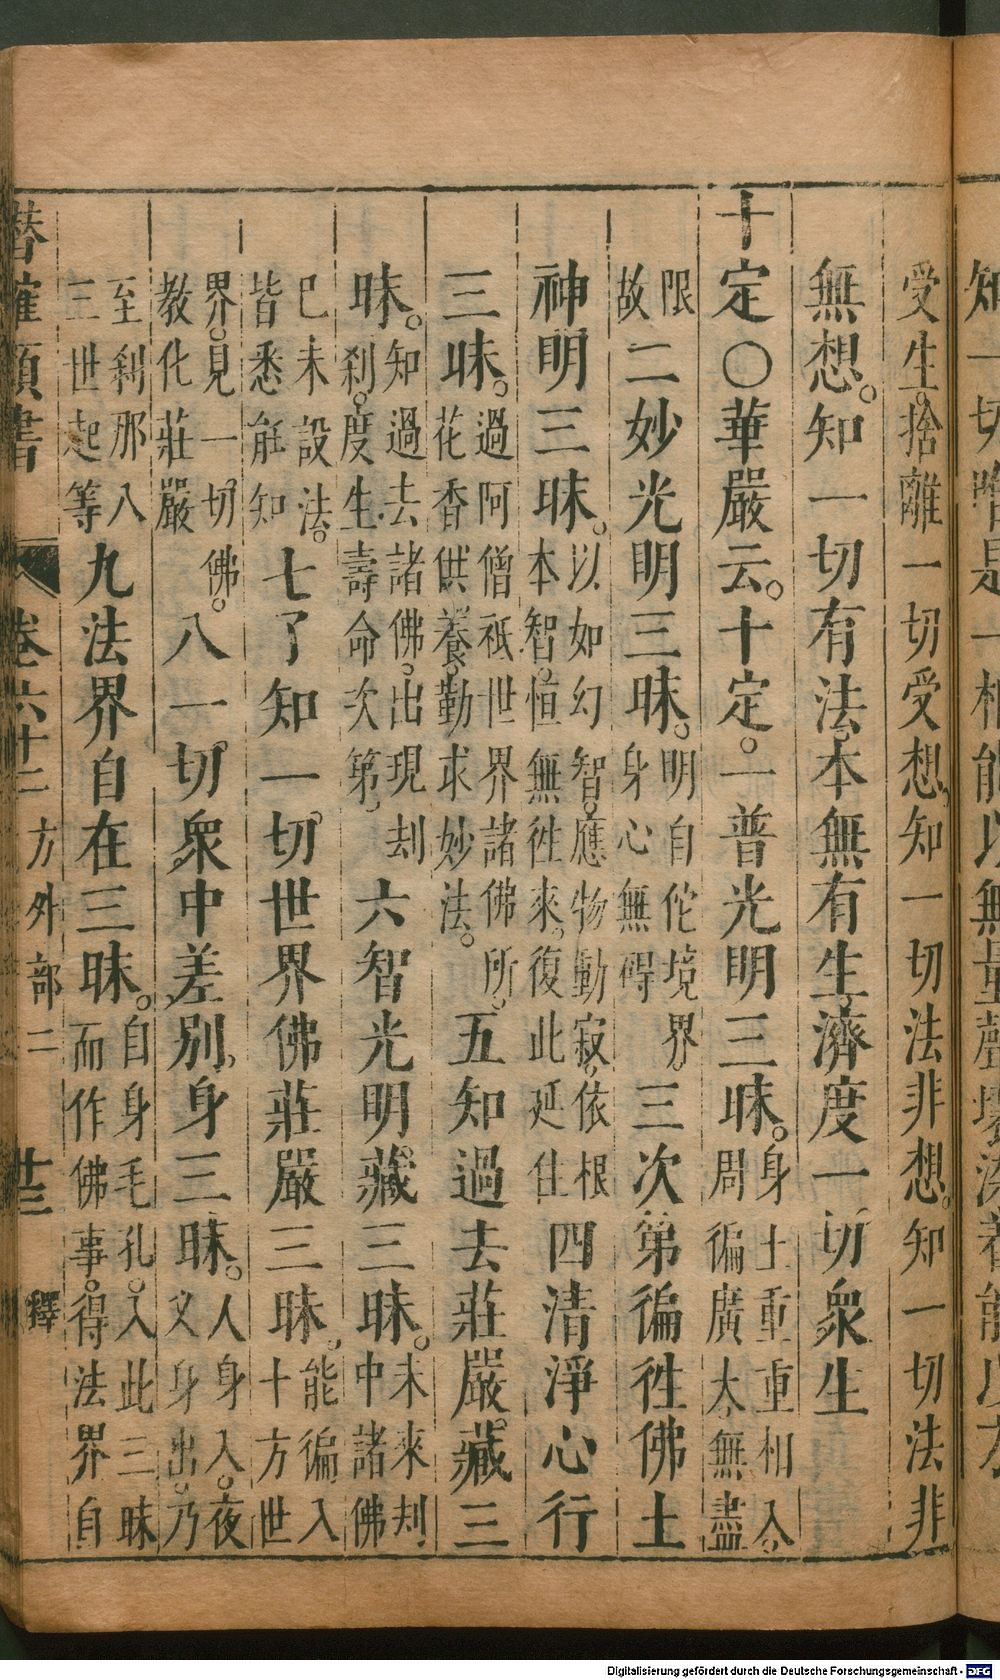 知一切
受生。捨離一切受想。知一切法非想。知一切法非
無想。知一切有法。本無有生。濟度一切衆生
十定〇華嚴云。十定。一普光明三昧。身土重重相入。周徧廣大。無盡
限故二妙光明三昧。明自佗境界。身心無碍三次第徧徃佛土
神明三昧。以如幻智。應物動寂。依根本智。恒無徃來。復此延住四清淨心行
三昧。過阿僧祇世界諸佛所。花香供養。勤求妙法。五知過去莊嚴藏三
昧。知過去諸佛。出現刦刹。度生壽命次第。六智光明藏三昧。未來刦中諸佛
已未設法。皆悉能知七了知一切世界佛莊嚴三昧。能徧入十方世
界。見一切佛。教化莊嚴八一切衆中差別身三昧。人身入。夜叉身出。乃
至刹那入三世起等九法界自在三昧。自身毛孔。入此三昧而作佛事。得法界自
潛確類書 卷六十二 方外部二 廿三 釋
Digitalisierung gefördert durch die Deutsche Forschungsgemeinschaft - DFG